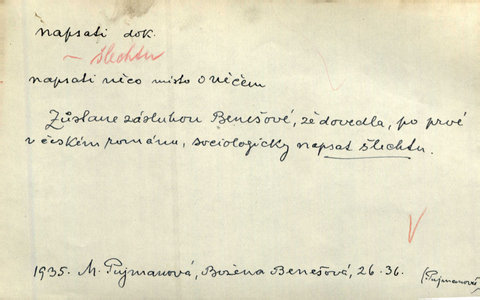 napsati dok.
~ šlechtu
napsati něco místo o něčem
Zůstane zásluhou Benešové, že dovedla, po prvé
v českém románu, sociologicky napsat šlechtu.
1935. M. Pujmanová, Božena Benešová, 26.36.
(Pujmanová)